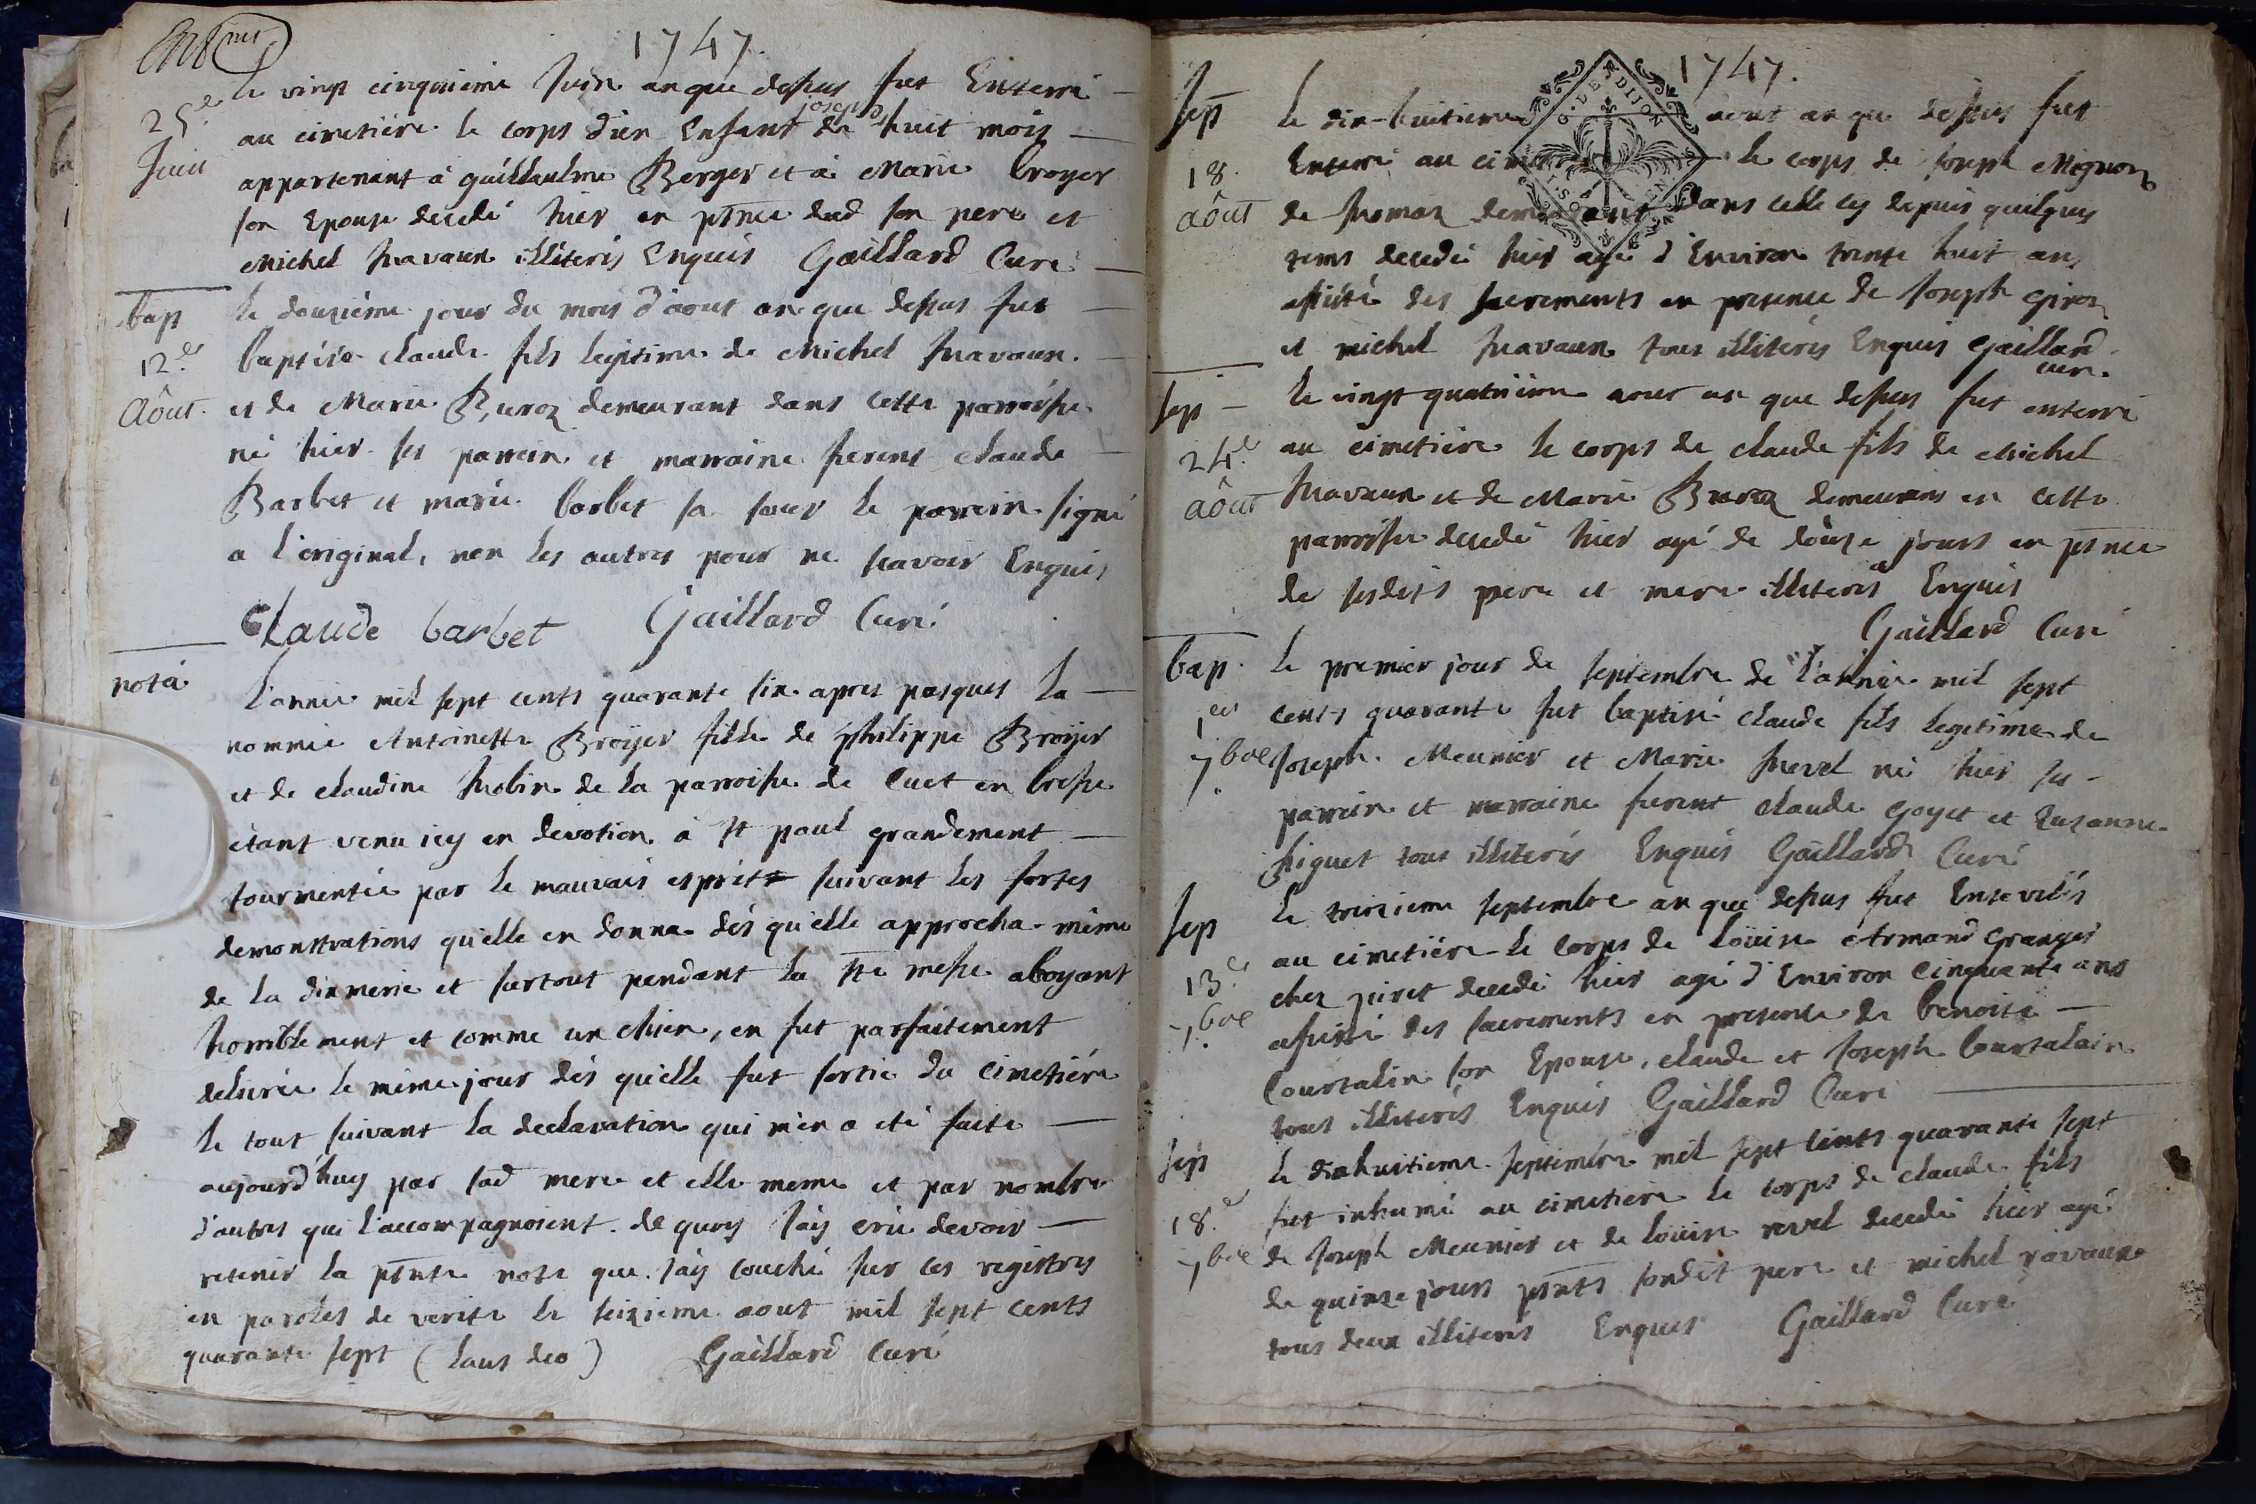 1747.
25.e Juin
Le vingt cinquieme Juin an que dessus fut Enterré
au cimetiére le corps d'un Enfant joseph de huit mois
appartenant à guillaulme Berger et à Marie broyer
son Epouse decedé hier en pñce dud son pere et
Michel Navaux illiterés Enquis Gaillard Curé
bap
12.e Aôut.
le douziéme jour du mois d'aout an que dessus fut
baptisé claude fils legitime de Michel
et de Marie Buroz demeurant dans cette parroisse
né hier ses parrein et marraine furent claude
Barbet et marie barbet sa soeur le parrein signé
a l'original, non les autres pour ne scavoir Enquis
Claude barbet Gaillard Curé
nota
L'année mil sept cents quarante six apres pasques la
nommée Antoinette Broÿer fille de philippe Broÿer
et de claudine de la parroisse de Cuet en bresse
étant venu icy en devotion à St paul grandement
tourmentée par le mauvais esprit suivant les fortes
demonstrations qu'elle en donna dés qu'elle approcha même
de la dixmerie et surtout pendant la Ste messe aboyant
horriblement et comme un chien, en fut parfaitement
delivrée le même jour dés qu'elle fut sortie du cimetiére
le tout suivant la declaration qui m'en a été faite
aujourd'huy par sad mere et elle meme et par nombre
d'autres qui l'accompagnoient. de quoy j'ay crû devoir
retenir la pñte note que j'ay couché sur ces registres
en paroles de verité le seizieme aout mil sept cents
quarante sept (Laus deo) Gaillard Curé
1747.
G. DE DIJON
Sep
18. aôut
le dix-huitieme aout an que dessus fut
Enterré au le corps de joseph Mignon
de demeurant dans celle cy depuis quelques
tems decedé hier agé d'Environ trente huit ans
assisté des sacrements en presence de Joseph giroz
et michel tous illiterés Enquis Gaillard
curé.
sep
24.e aôut
le vingt quatrième aout an que dessus fut enterré
au cimetiére le corps de claude fils de Michel
et de Marie Buroz demeurans en cette
parroisse decedé hier agé de douze jours en pñce
de sesdits pere et mere illiterés Enquis
Gaillard Curé
bap.
1er 7bre
le premier jour de septembre de l'année mil sept
cents quarante fut baptisé claude fils legitime de
Joseph Meunier et Marie né hier ses
parrein et marraine furent claude goyet et Suzanne
tous illiterés Enquis Gaillard Curé
sep
13.e 7bre
le treizieme septembre an que dessus fut Ensevelis
au cimetiére le corps de Louise Armand granger
chez piret decedé hier agé d'Environ cinquante ans
assisté des sacrements en presence de benoite
Courtalin son Epouse, claude et Joseph Courtalain
tous illiterés Enquis Gaillard Curé
sep
18.e 7bre
le dixhuitieme septembre mil sept cents quarante sept
fut inhumé au cimetiere le corps de claude fils
de Joseph Meunier et de Louise revel decedé hier agé
de quinze jours pñts sondit pere et michel
tous deux illiterés Enquis Gaillard Curé